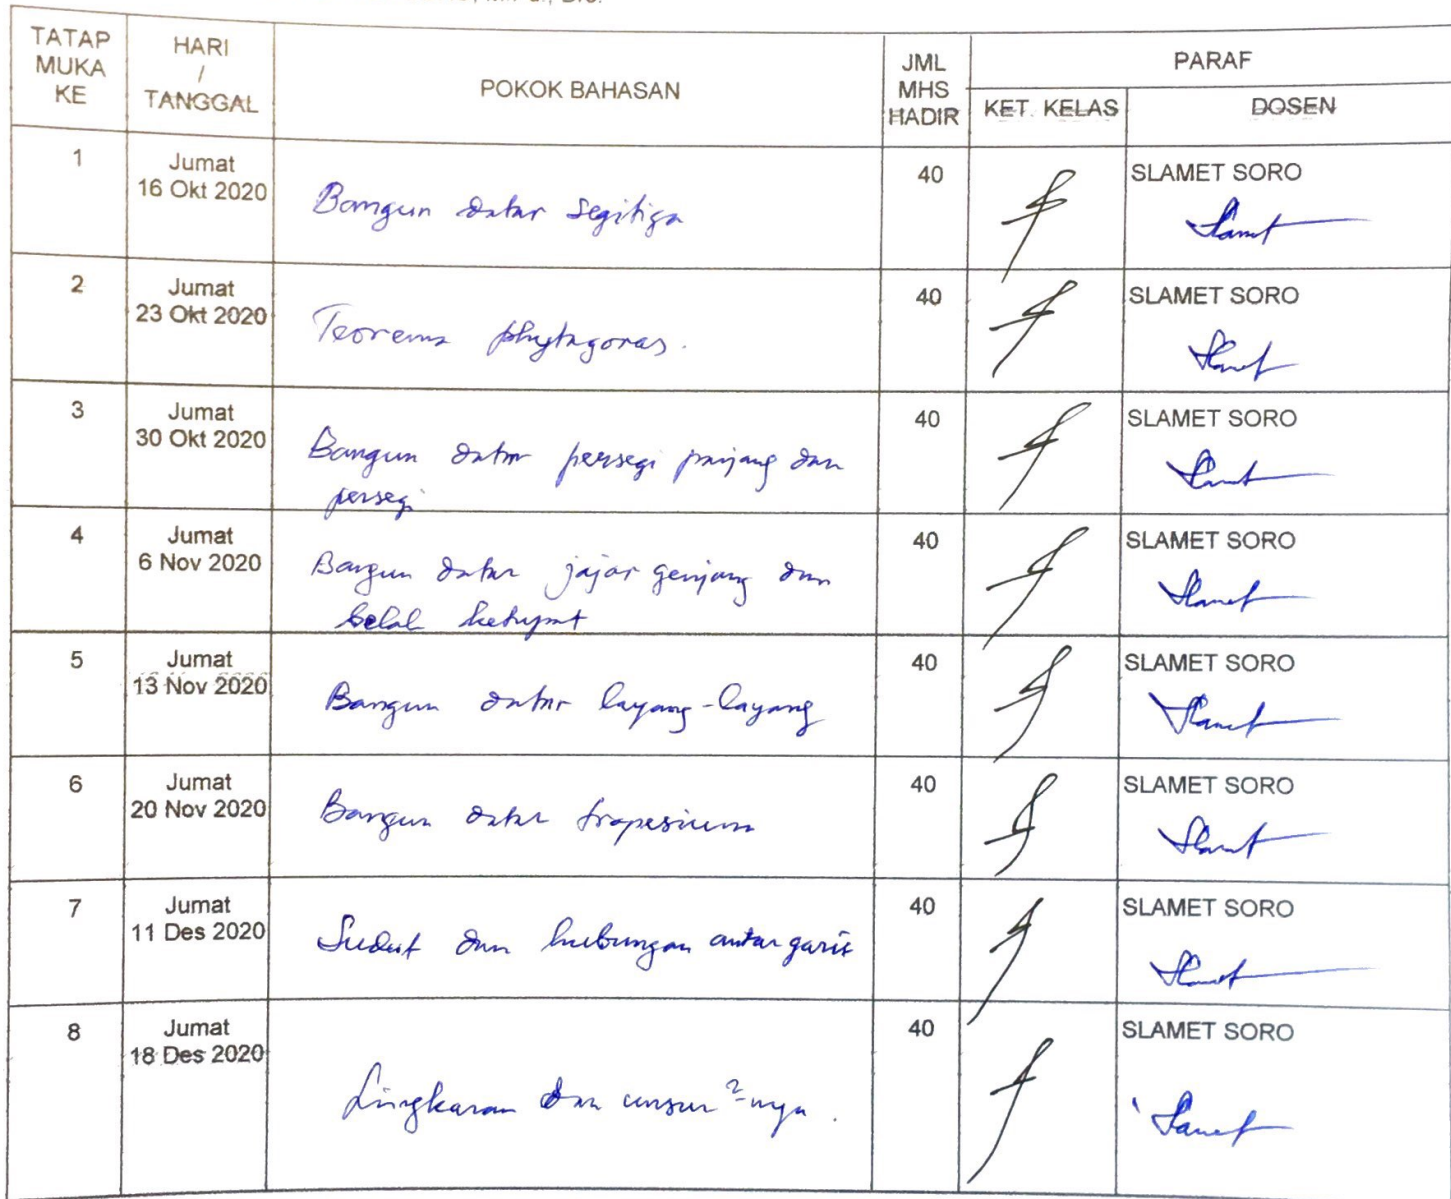 TATAP MUKA KE
HARI / TANGGAL
POKOK BAHASAN
JML MHS HADIR
PARAF
KET. KELAS
DOSEN
1
Jumat
16 Okt 2020
Bangun datar segitiga
40
SLAMET SORO
2
Jumat
23 Okt 2020
Teorema phytagoras.
40
SLAMET SORO
3
Jumat
30 Okt 2020
Bangun datar persegi panjang dan
persegi
40
SLAMET SORO
4
Jumat
6 Nov 2020
Bangun datar jajar genjang dan
belah ketupat
40
SLAMET SORO
5
Jumat
13 Nov 2020
Bangun datar layang-layang
40
SLAMET SORO
6
Jumat
20 Nov 2020
Bangun datar trapesium
40
SLAMET SORO
7
Jumat
11 Des 2020
Sudut dan hubungan antar garis
40
SLAMET SORO
8
Jumat
18 Des 2020
Lingkaran dan unsur²-nya.
40
SLAMET SORO